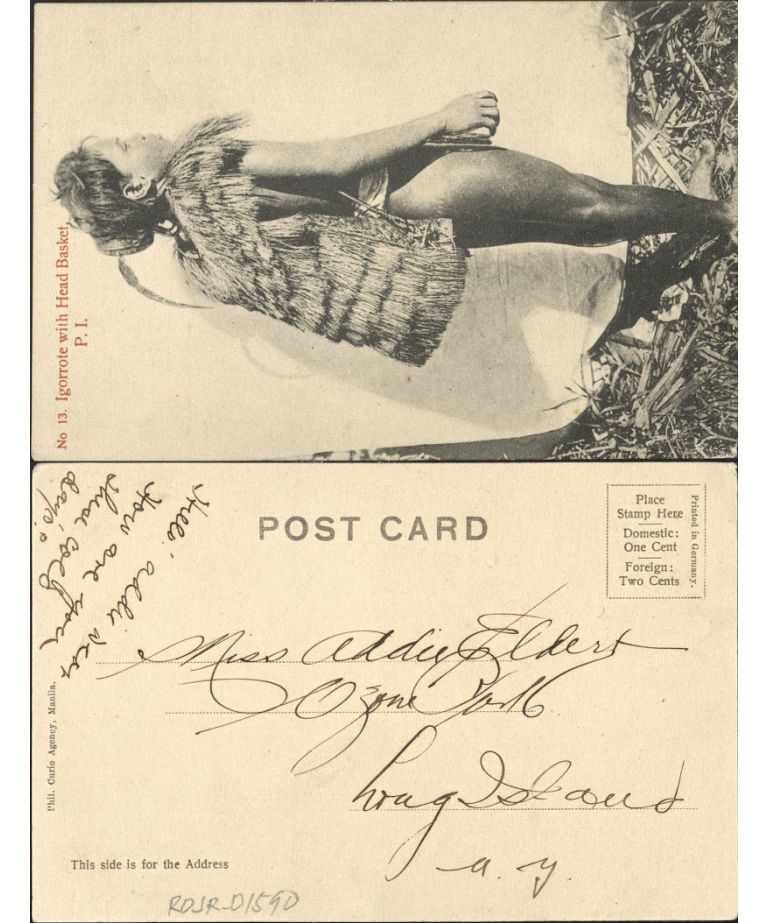 No 13. Igorrote with Head Basket,
P. I.
POST CARD
Place
Stamp Here
Domestic:
One Cent
Foreign:
Two Cents
Printed in Germany.
Hello Addie dear
How are you
these cold
days?
Miss Addie Eldert
Ozone Park
Long Island
N. Y.
Phil. Curio Agency, Manila.
This side is for the Address
RDJR-D1590